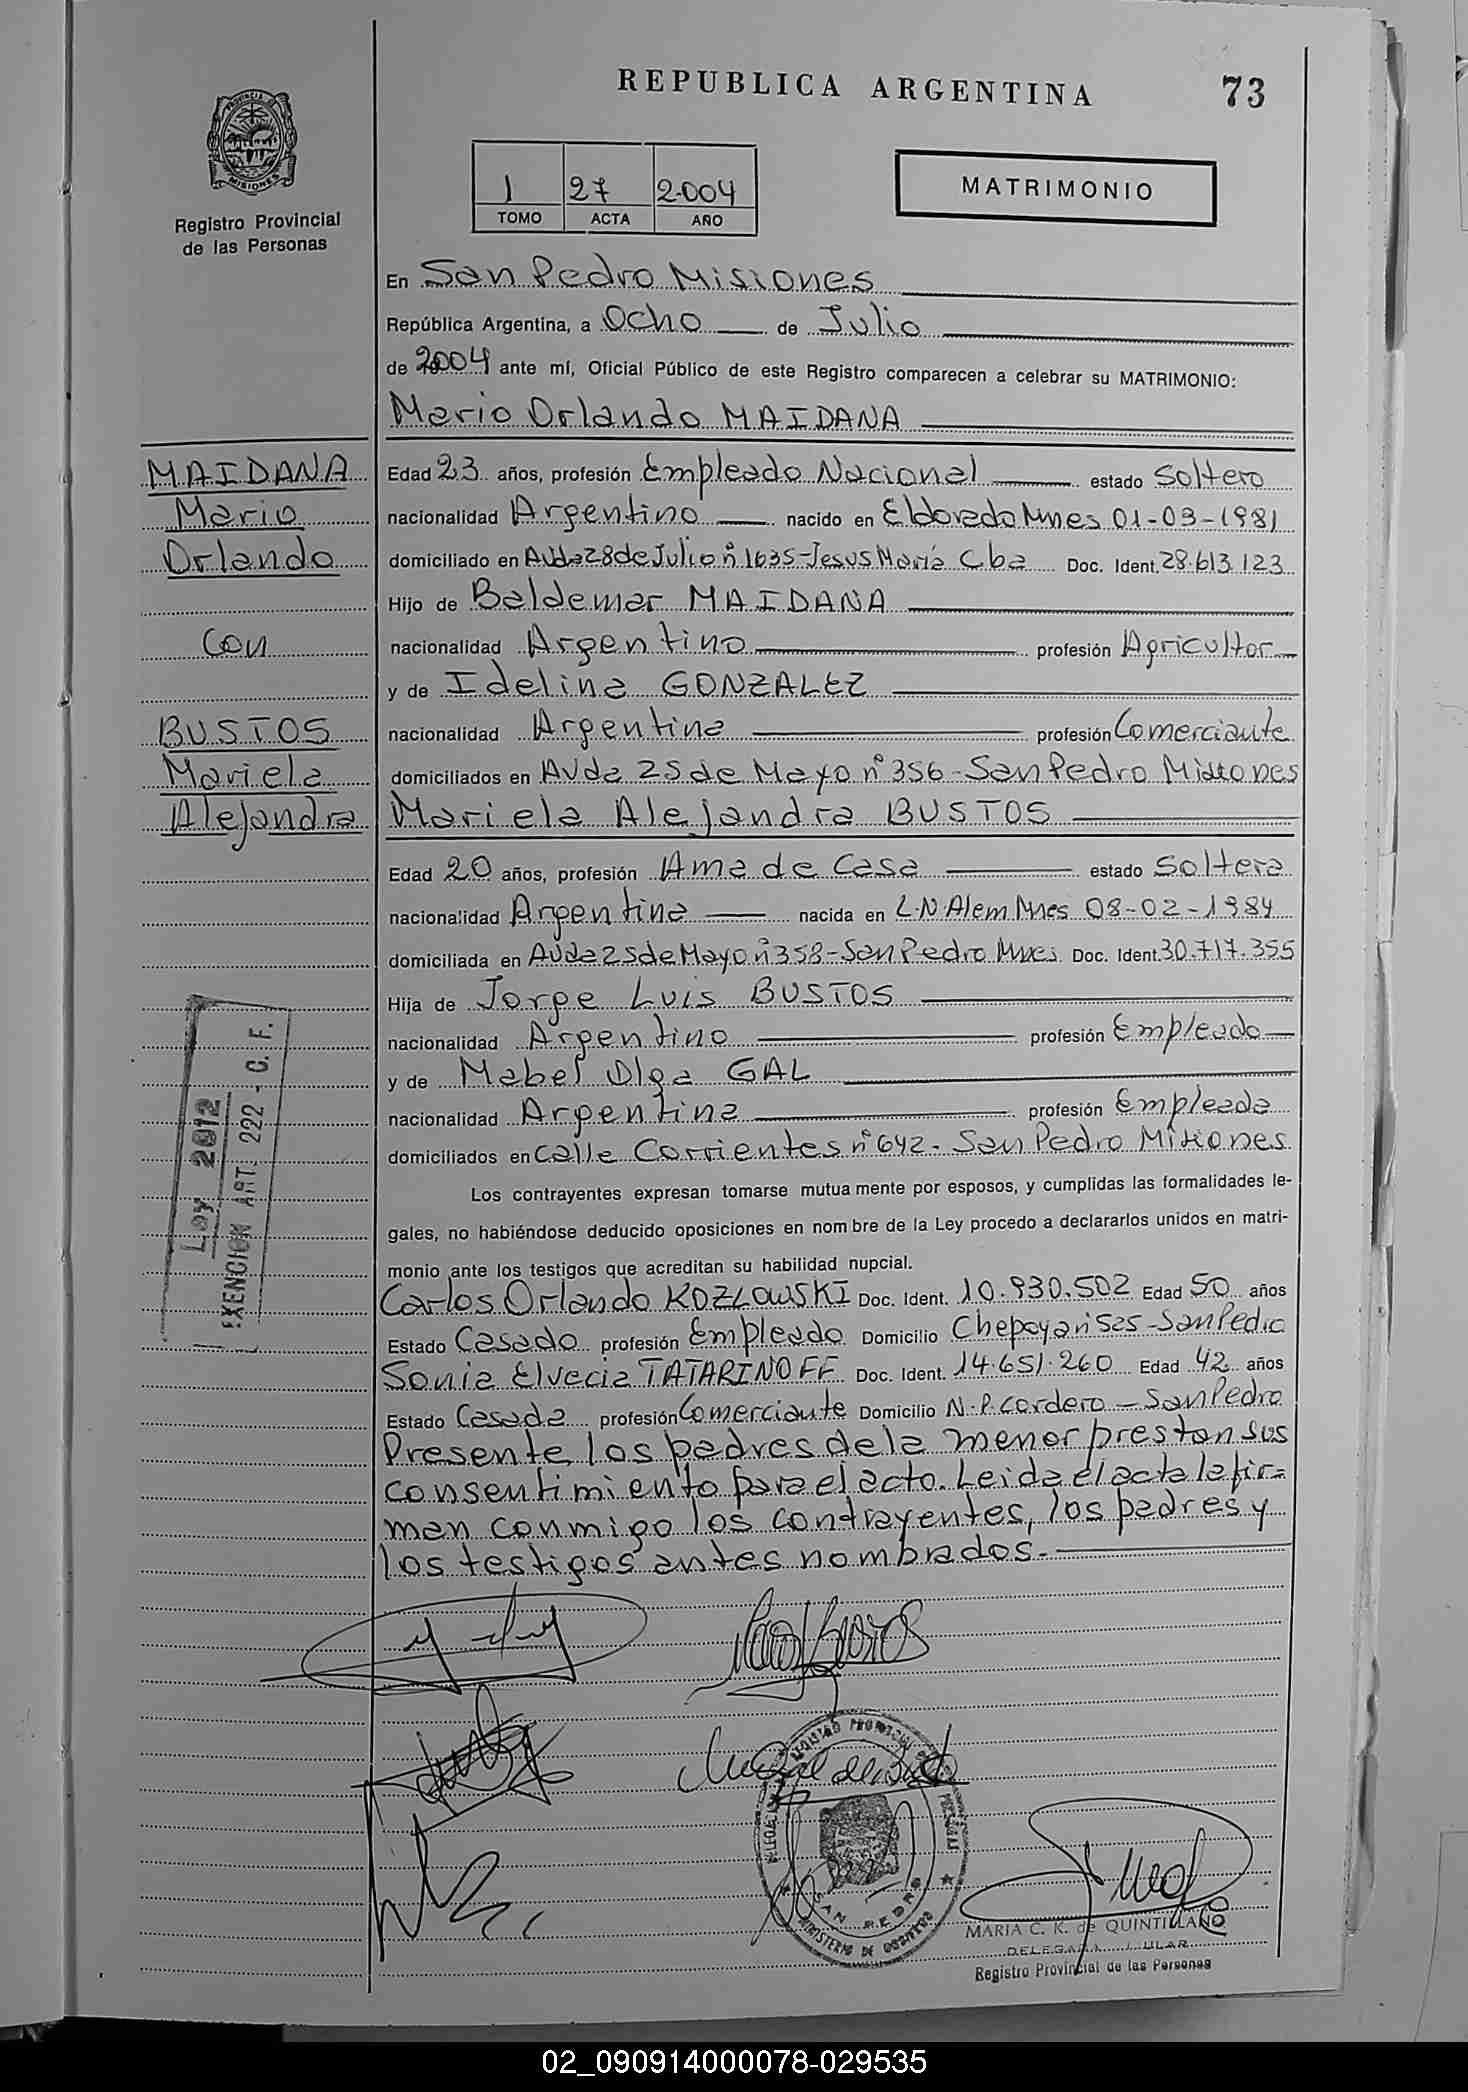 REPUBLICA ARGENTINA
73
PROVINCIA DE
MISIONES
Registro Provincial
de las Personas
1 27 2.004
TOMO ACTA AÑO
MATRIMONIO
En San Pedro Misiones
República Argentina, a Ocho de Julio
de 2004 ante mí, Oficial Público de este Registro comparecen a celebrar su MATRIMONIO:
Mario Orlando MAIDANA
MAIDANA
Mario
Orlando
con
BUSTOS
Mariela
Alejandra
Edad 23 años, profesión Empleado Nacional estado Soltero
nacionalidad Argentino nacido en Eldorado Mnes 01-03-1981
domiciliado en Avda 28 de Julio nº 1635-Jesus María Cba Doc. Ident. 28.613.123
Hijo de Baldemar MAIDANA
nacionalidad Argentino profesión Agricultor
y de Idelina GONZALEZ
nacionalidad Argentina profesión Comerciante
domiciliados en Avda 25 de Mayo nº 356-San Pedro Misiones
Mariela Alejandra BUSTOS
Edad 20 años, profesión Ama de Casa estado Soltera
nacionalidad Argentina nacida en L.N.Alem Mnes 08-02-1984
domiciliada en Avda 25 de Mayo nº 358-San Pedro Mnes Doc. Ident. 30.717.355
Hija de Jorge Luis BUSTOS
nacionalidad Argentino profesión Empleado
y de Mabel Olga GAL
nacionalidad Argentina profesión Empleada
domiciliados en calle Corrientes nº 642- San Pedro Misiones
Ley 2912
EXENCION ART. 222 - C. F.
Los contrayentes expresan tomarse mutuamente por esposos, y cumplidas las formalidades le-
gales, no habiéndose deducido oposiciones en nombre de la Ley procedo a declararlos unidos en matri-
monio ante los testigos que acreditan su habilidad nupcial.
Carlos Orlando KOZLOWSKI Doc. Ident. 10.930.502 Edad 50 años
Estado Casado profesión Empleado Domicilio San Pedro
Sonia Elvecia TATARINOFF Doc. Ident. 14.651.260 Edad 42 años
Estado Casada profesión Comerciante Domicilio N.P. Cordero - San Pedro
Presente los padres de la menor prestan sus
consentimiento para el acto. Leida el acta la fir=
man conmigo los contrayentes, los padres y
los testigos antes nombrados.-
SAN PEDRO
MINISTERIO DE GOBIERNO
MARIA C. K. de QUINTILLANO
Registro Provincial de las Personas
02_090914000078-029535